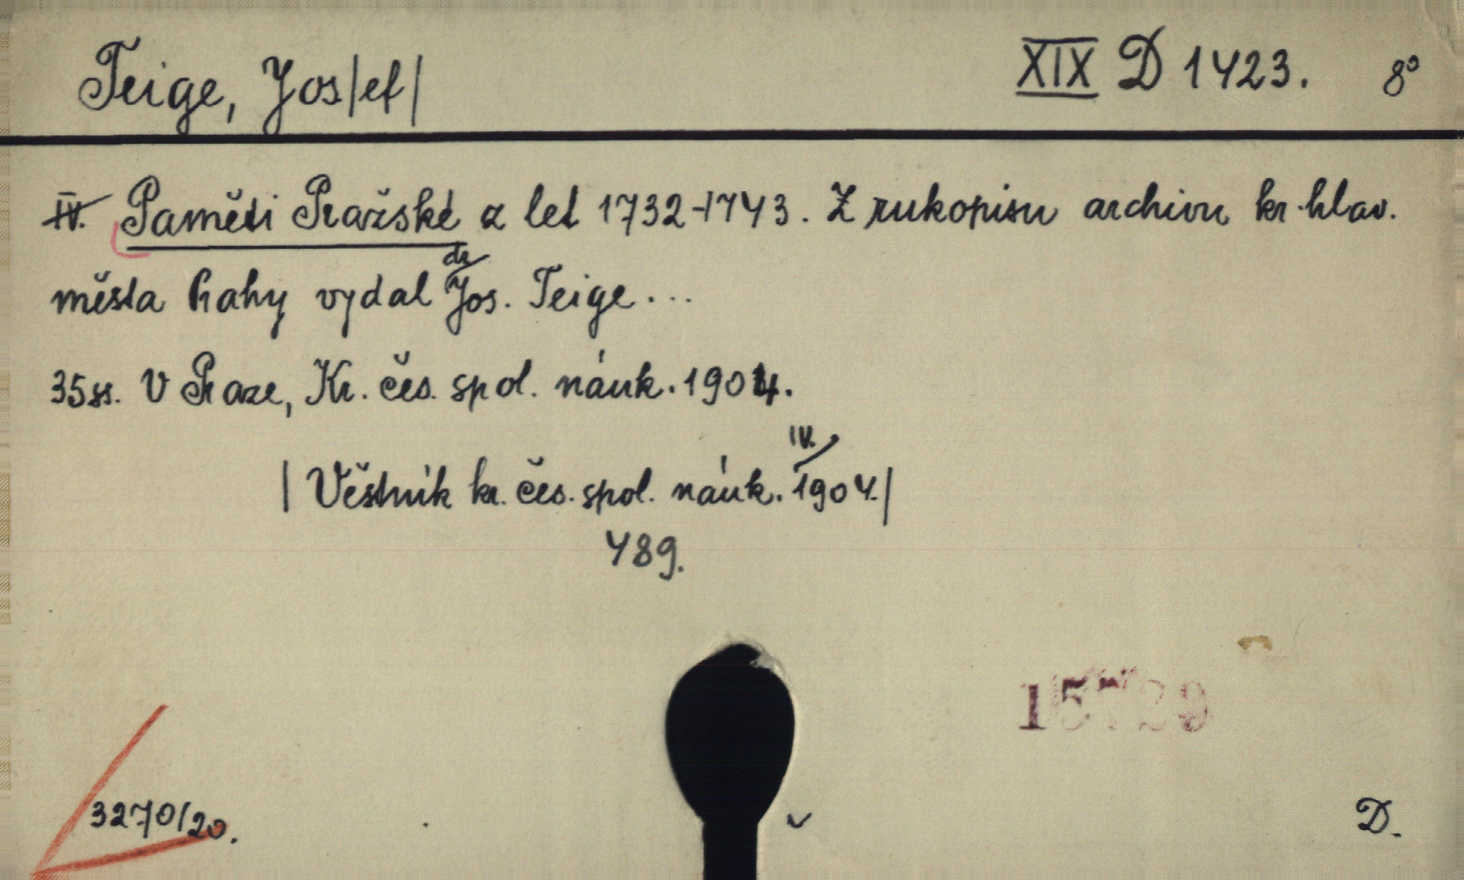 Teige, Jos|ef| XIX D 1423. 8°
IV. Paměti Pražské z let 1732-1743. Z rukopisu archivu kr. hlav.
města Prahy vydal dr Jos. Teige...
35 ss. V Praze, Kr. čes. spol. náuk. 1904.
| Věstník kr. čes. spol. náuk. IV. 1904.|
489.
15729
3270/20.
D.